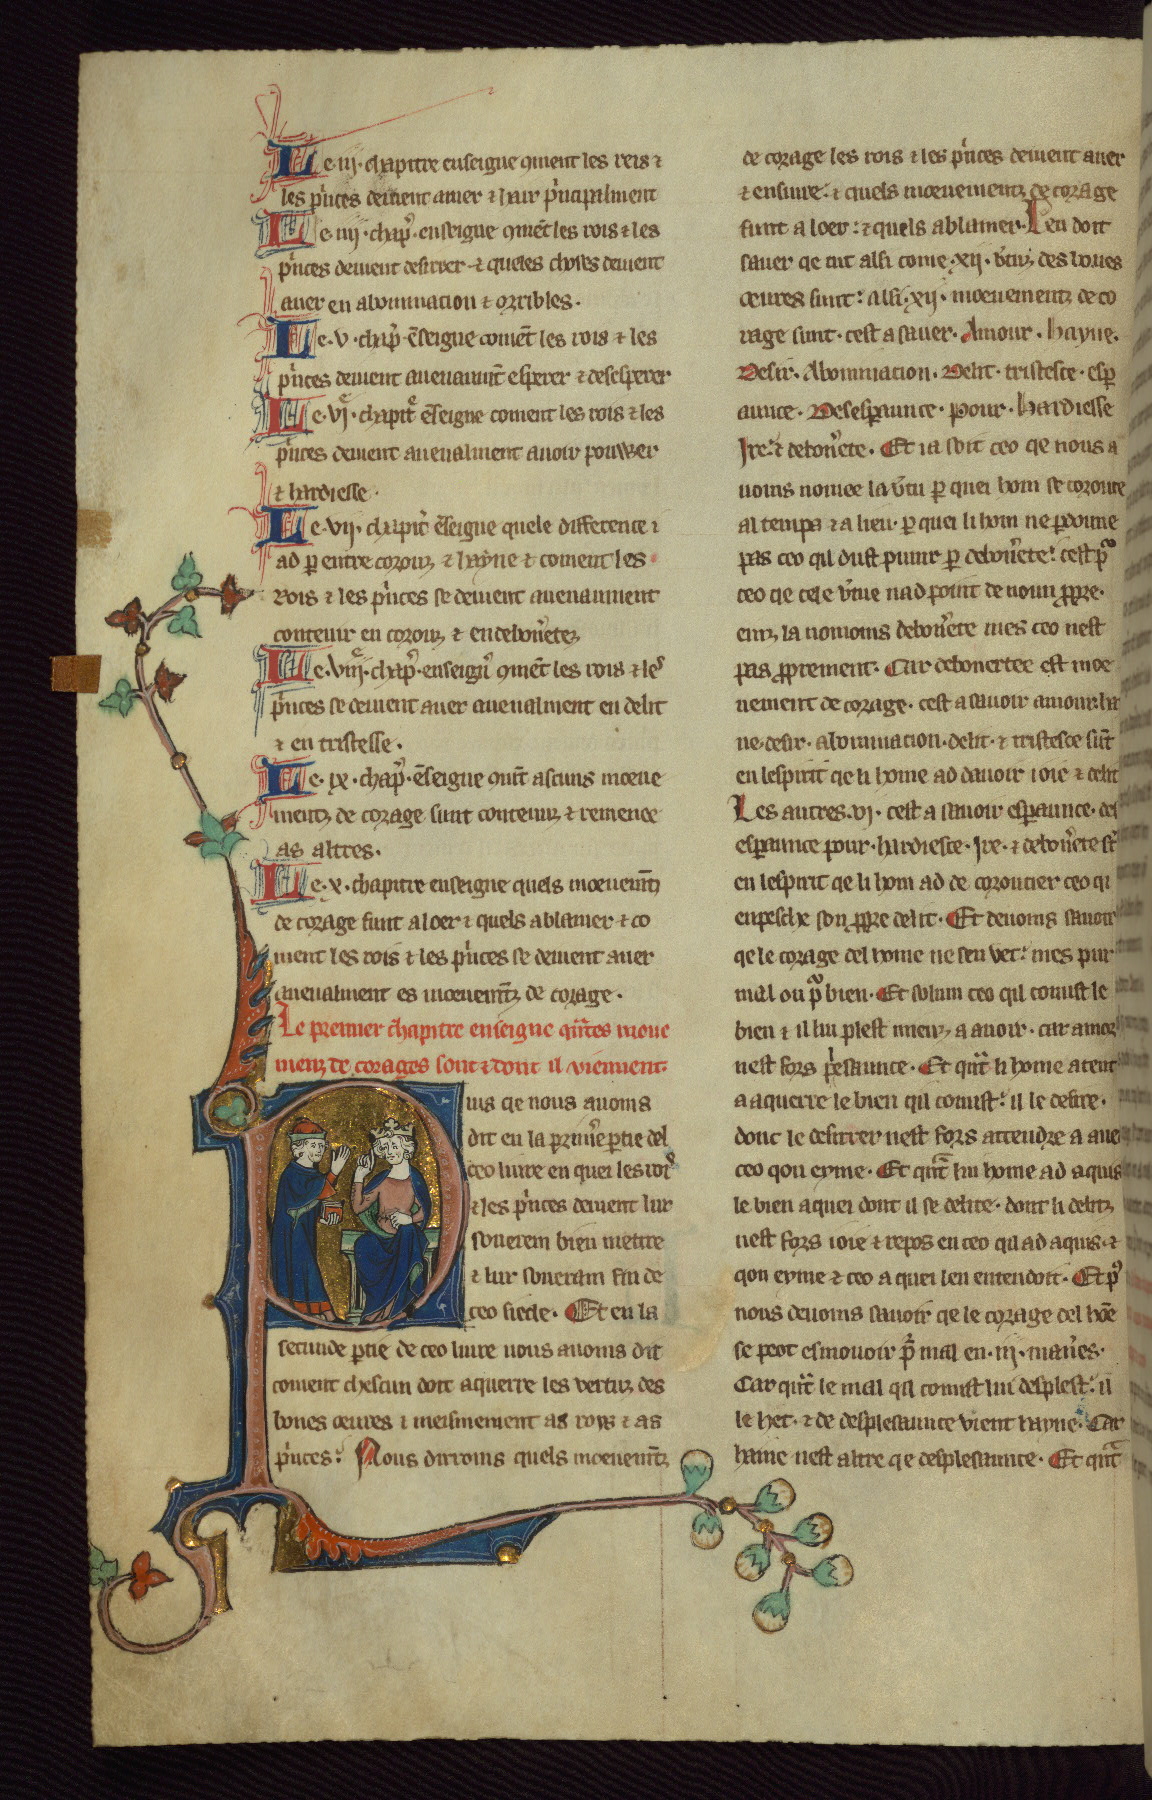 Le iij. chapitre enseigne 9ment les reis ⁊
les p'nces deiuent amer ⁊ hair p'ncipalment
Le iiij. chap'. enseigne 9mēt les rois ⁊ les
p'nces deiuent desirrer ⁊ queles choses deiuent
auer en abominacion ⁊ orribles.
Le. v. chap'. ēseigne comēt les rois ⁊ les
p'nces deiuent auenaumt esperer ⁊ desesperer
Le. vj. chapit' ēseigne coment les rois ⁊ les
p'nces deiuent auenalment auoir pouwer
⁊ hardiesse.
Le. vij. chapit' ēseigne quele difference i
ad p entre corouz ⁊ hayne ⁊ coment les
Rois ⁊ les p'nces se deiuent auenaument
contenir en corouz ⁊ en debon'etez
Le. viij. chap'. enseign' 9mēt les rois ⁊ les
p'nces se deiuent auer auenalment en delit
⁊ en tristesse.
Le. ix. chap'. ēseigne 9mt ascuns moeue
mentz de corage sunt contenuz ⁊ remenee
as altres.
Le. x. chapitre enseigne quels moeuemtz
de corage sunt a loer ⁊ quels a blamer ⁊ co
ment les rois ⁊ les p'nces se deiuent auer
auenalment es moeuemtz de corage.
Le premier chapitre enseigne quātes moue
menz de corages sont ⁊ dont il viennent.
Puis qe nous auoms
dit en la prim'e ptie del
ceo liure en quei les rois
⁊ les p'nces deiuent lur
souerein bien mettre
⁊ lur souerain fin de
ceo siecle. Et en la
secunde ptie de ceo liure nous auoms dit
coment chescun doit aquerre les vertuz des
bones oeures ⁊ meismement as roys ⁊ as
p'nces: Nous dirroms quels moeuemtz
de corage les rois ⁊ les p'nces deiuent auer
⁊ ensuire: ⁊ quels moeuementz de corage
sunt a loer: ⁊ quels a blamer. Len doit
sauer qe tut alsi come .xij. v'tuz des bones
oeures sunt: alsi .xij. moeuementz de co
rage sunt. cest a sauer. Amour. hayne.
Desir. Abominacion. Delit. tristesce. esp
aunce. Desespaunce. Pour. Hardiesse
Ire. ⁊ debon'ete. Et ia soit ceo qe nous a
uoms nomee la v'tu p quei hom se coronce
al temps ⁊ a lieu. p quei li hom ne pdoune
pas ceo qil dust punir p debon'ete: cest p'
ceo qe cele v'tue nad point de noun ppre.
einz la nomoms debon'ete mes ceo nest
pas pprement. Car debonertee est moe
uement de corage. cest a sauoir amour. ha
ne. desir. abominacion. delit. ⁊ tristesce sūt
en lespirit qe li home ad dauoir ioie ⁊ delit
Les autres .vj. cest a sauoir espaunce. des
espaunce pour. hardiesce. Ire. ⁊ debon'ete sūt
en lespirit qe li hom ad de coroucier ceo qi
enpesche son ppre delit. Et deuoms sauoir
qe le corage del home ne seu vet: mes pur
mal ou p' bien. Et solum ceo qil conust le
bien ⁊ il lui plest mieuz a auoir. car amor
nest fors p'saunce. Et quāt li home atent
a aquerre le bien qil conust: il le desire.
donc le desirrer nest fors attendre a auer
ceo qou eyme. Et quāt lui home ad aquis
le bien a quei dont il se delite. dont li delitz
nest fors ioie ⁊ repos en ceo qil ad aquis. ⁊
qou eyme ⁊ ceo a quei len entendoit. Et p'
nous deuoms sauoir qe le corage del hōe
se peot esmouoir p' mal en .iij. man'es.
Car quāt le mal qil conust lui desplest: il
le het. ⁊ de desplesaunce vient hayne. Car
haine nest altre qe desplesaunce. Et quāt